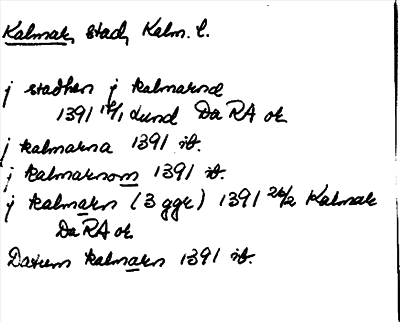 Kalmar, stad, Kalm. l.
j stadhen j kalmarnd
1391 Lund Da RA or
j kalmarna 1391 ib.
j kalmarnom 1391 ib.
j kalmarn (3 ggr) 1391 26/2 Kalmar
Da RA or
Datum kalmarn 1391 ib.